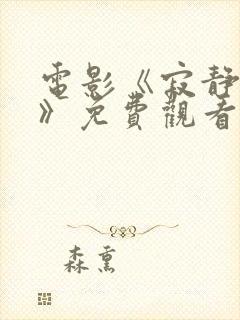 電影《寂静
》免費觀看
森熏